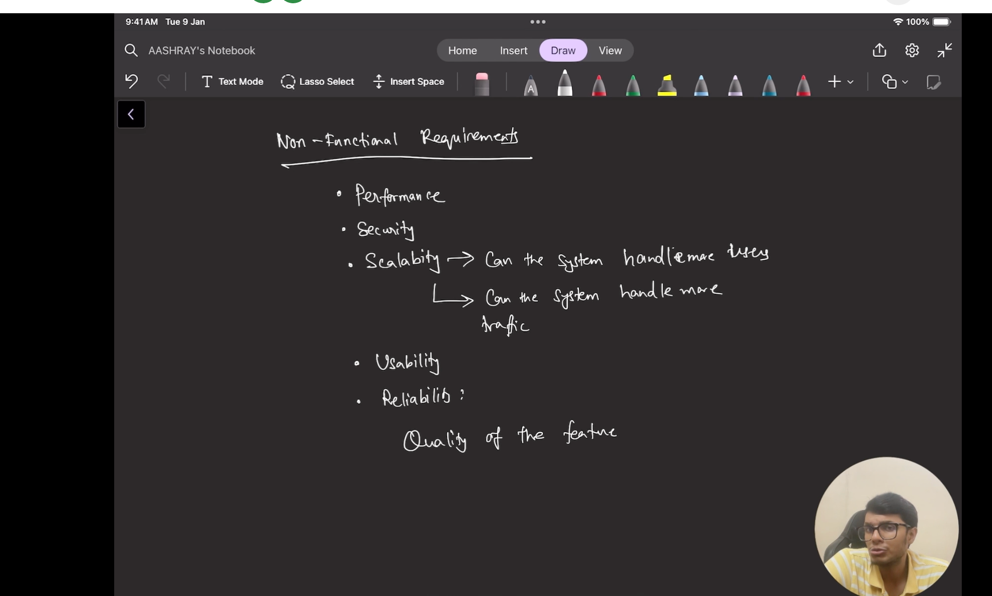 9:41 AM Tue 9 Jan
100%
AASHRAY's Notebook
Home Insert Draw View
Text Mode Lasso Select Insert Space
A
Non-Functional Requirements
• Performance
• Security
• Scalabity → Can the system handle more users
→ Can the system handle more
traffic
• Usability
• Reliability:
Quality of the feature